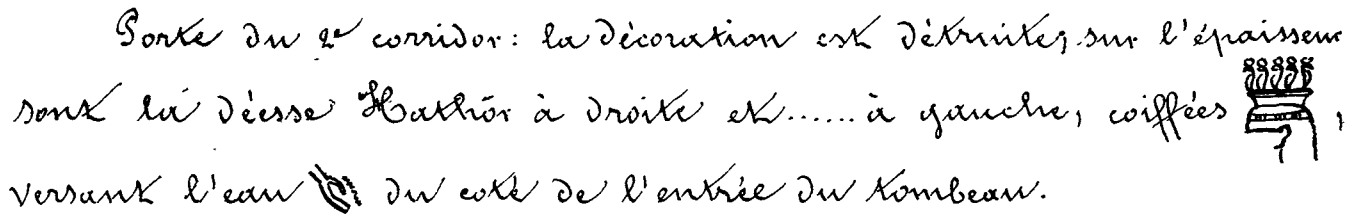 Porte du 2e corridor: la décoration est détruite, sur l'épaisseur
sont la déesse Hathōr à droite et...... à gauche, coiffées ,
versant l'eau du coté de l'entrée du tombeau.